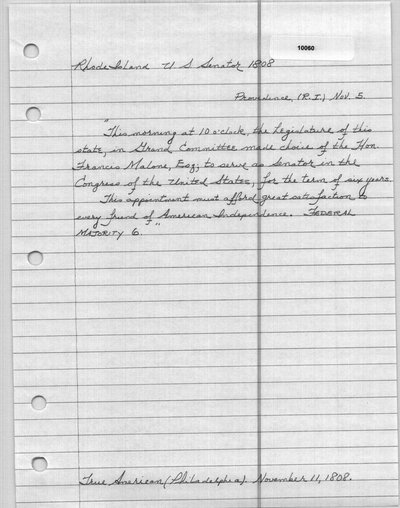 10060
Rhode Island U S Senator 1808
Providence, (R.I.) Nov. 5.
"This morning at 10 o'clock, the Legislature of this
state, in Grand Committee made choice of the Hon.
Francis Malone, Esq; to serve as Senator in the
Congress of the United States, for the term of six years.
This appointment must afford great satisfaction to
every friend of American Independence. FEDERAL
MAJORITY 6."
True American (Philadelphia). November 11, 1808.